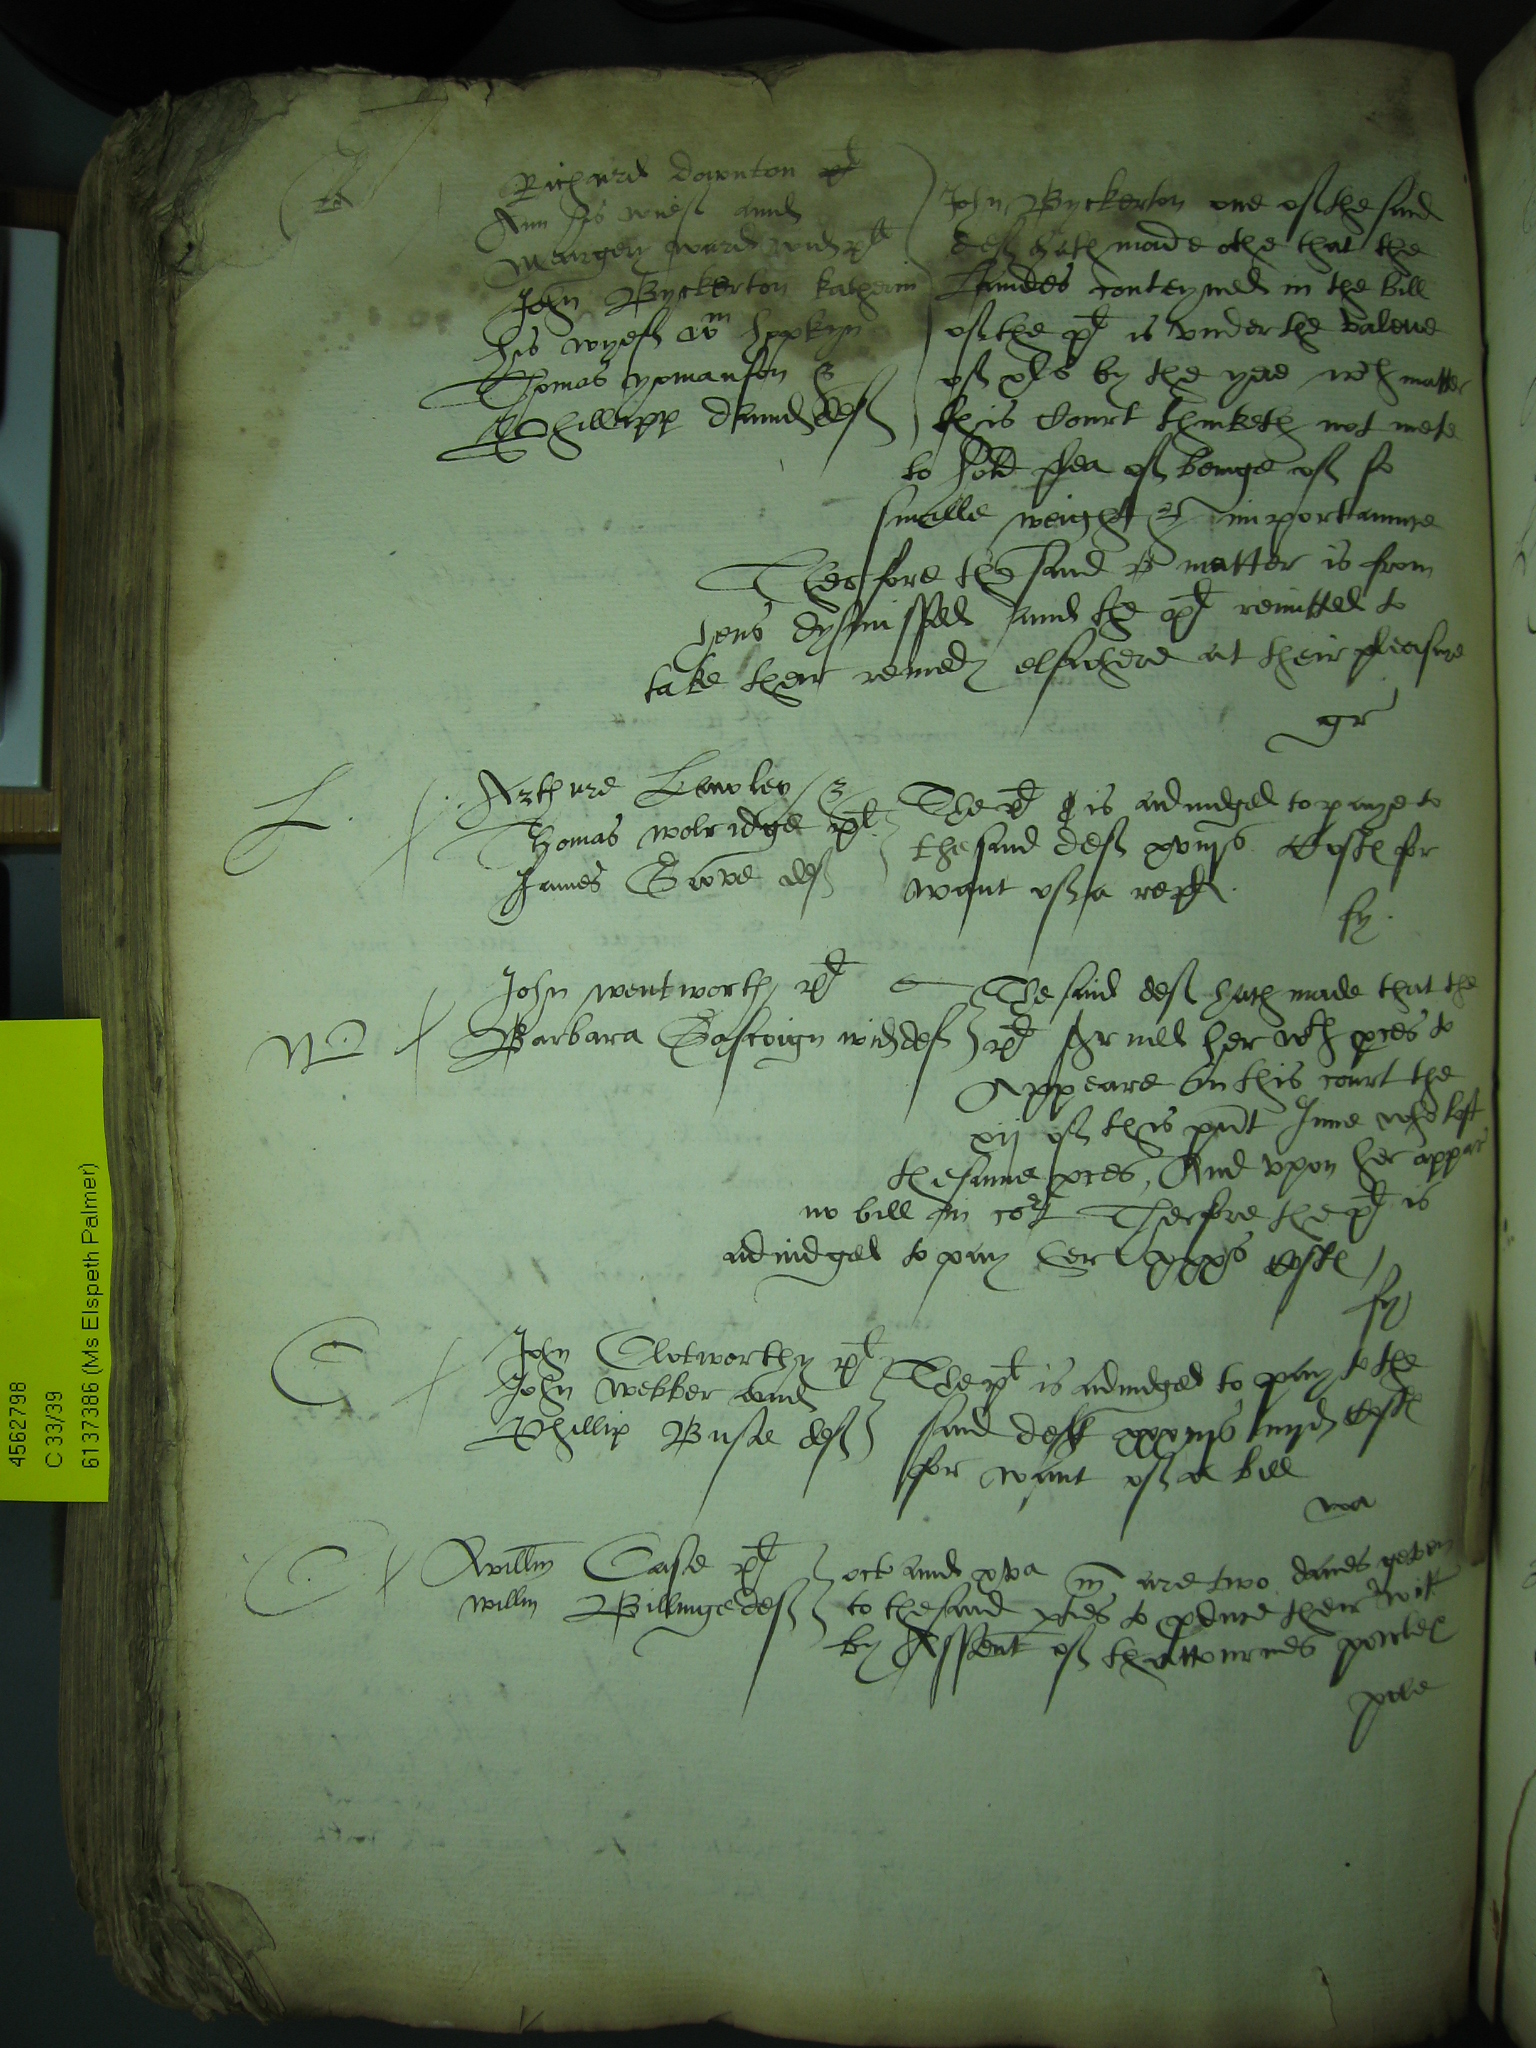 Richard Downton
Ann his wief and
Margery ward wid plt
John Byckerton Katherin
his wyef Wm Hopkyn
Thomas yomanson &
Phillipp def
John Byckerton one of the said
def hath made othe that the
Landes conteyned in the bill
of the pl is vnder the valeue
of xls by the yere wch matter
this Court thinketh not mete
to hold plea of beinge of so
smalle weight & importaunce
Therfore the said matter is from
hens dysmissed and the pl remitted to
take their remedy elswhere at their pleasure
gr
L
Arthure Lowley &
Thomas wolridge pl
James Grove def
The pl is adiudged to paye to
the said def Costes for
want of a repl.
fy.
W
John wentworth pl
Barbara Gascoign wid def
The said def hath made that the
pl serued her wth pces to
Appeare in this court the
xij of this pnt June who left
the same pces, And vpon her appar
no bill in cort Therfore the pl is
adiudged to pay her xxxs costes
fy
C
John Clotworthy pl
John Webber and
Phillip Buse def
The pl is adiudged to pay to the
said def iiijd Costes
for want of a bill
wa
C
Willm Case pl
Willm Billinge def
oct and xva m are two daies geven
to the said pties to pduce their witt
by Assent of thattournies powle
powle
4562798
C 33/39
6137386 (Ms Elspeth Palmer)